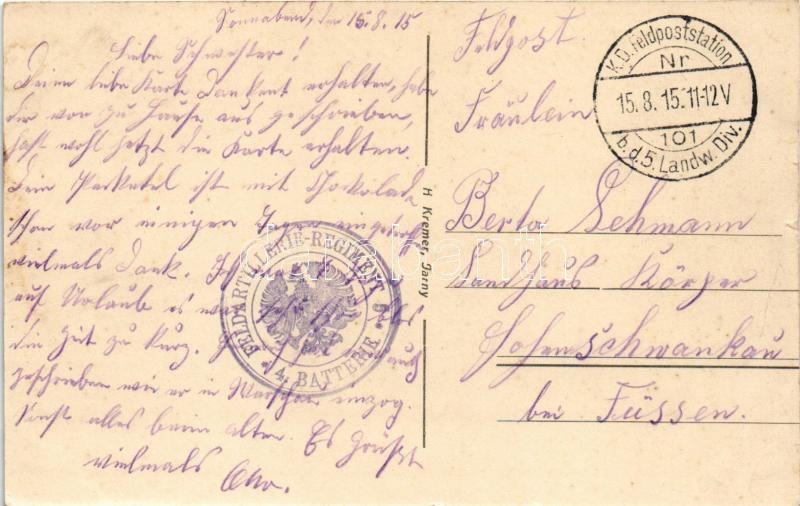 Sonnabend, den 15.8.15
Liebe Schwester!
Deine liebe Karte dankend erhalten, habe
dir von zu Hause aus geschrieben,
hast wohl jetzt die Karte erhalten.
Dein Packetel ist mit Chokolade
schon vor einigen Tagen
vielmals Dank. Ich
auf Urlaub es war
die Zeit zu kurz. auch
geschrieben wie er in Warschau einzog.
Sonst alles beim alten. Es Grüßt
vielmals Otto.
FELDARTILLERIE-REGIMENT
4. BATTERIE
H Kremer, Jarny
Feldpost.
Fräulein
Berta Lehmann
Landhaus Körper
Hohenschwankau
bei Füssen.
K.D. Feldpoststation
Nr
15.8.15.11-12V
101
b.d.5.Landw.Div.